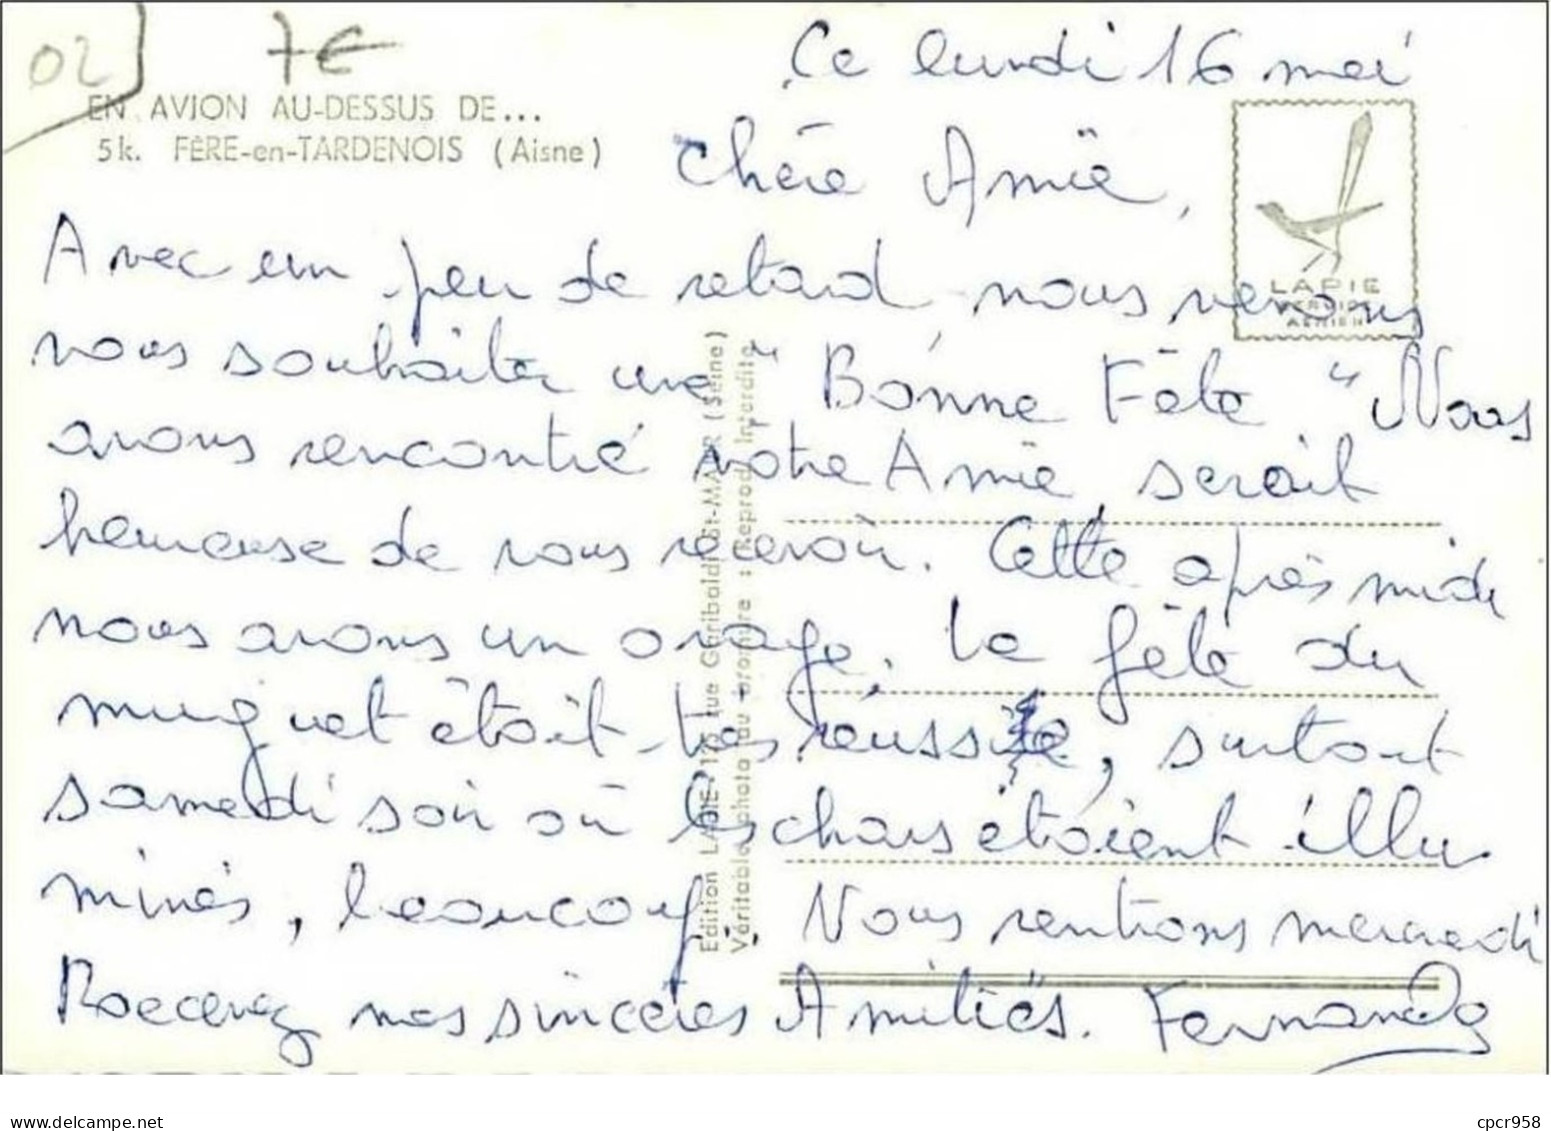 02
7€
EN AVION AU-DESSUS DE...
5k. FÈRE-en-TARDENOIS (Aisne)
Ce lundi 16 mai
Chère Amie,
LAPIE
SERVICE
AERIEN
Avec un peu de retard, nous venons
vous souhaiter une " Bonne Fête " Nous
avons rencontré votre Amie, serait
heureuse de vous recevoir. Cette après midi
nous avons un orage, la fête du
muguet était très réussie, surtout
samedi soir où les chars étaient illu
minés, beaucoup. Nous rentrons mercredi
Recevez nos sincères Amitiés. Fernande
Edition LAPIE rue Garibaldi St-MAUR (Seine)
Véritable photo au bromure : Reprod. interdite
cpcr958